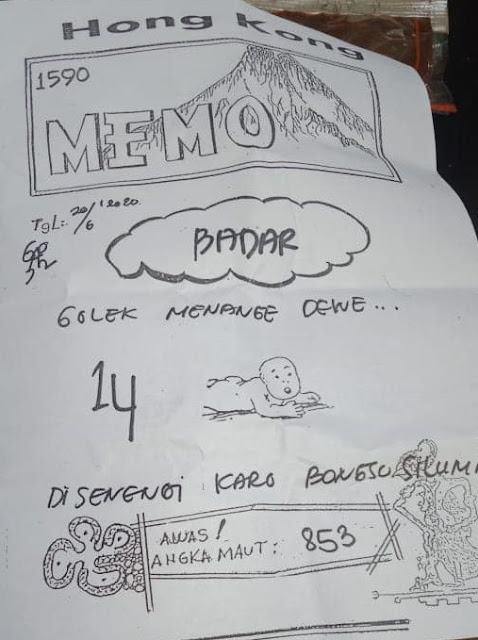 Hong Kong
1590
MEMO
TgL: 20/6 '2020
BADAR
GOLEK MENANGE DEWE...
14
DISENENGI KARO BONGSO SILUMA
AWAS!
ANGKA MAUT: 853